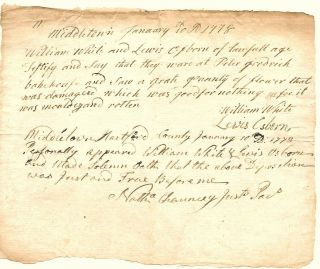 Middletown January 10 D 1778
William White and Lewis Osborn of lawfull age
Testify and Say that they ware at Peter goodrich
bakehous and Saw a grate quantity of flower that
was damagine which was good for nothing as for it
was mouldey and rotten
William White
Lewis Osborn
Middletown Hartford County January 10th D. 1778
Personally appeared William White & Lewis Osborn
and Made Solemn Oath that the above Deposition
was Just and True Before me
Nath Chauncey Just Pac